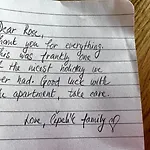 Dear Rose,
hank you for everything.
his was frankly one
f the nicest holiday we
ver had. Good luck with
he apartment, take care.
Love, family ♡